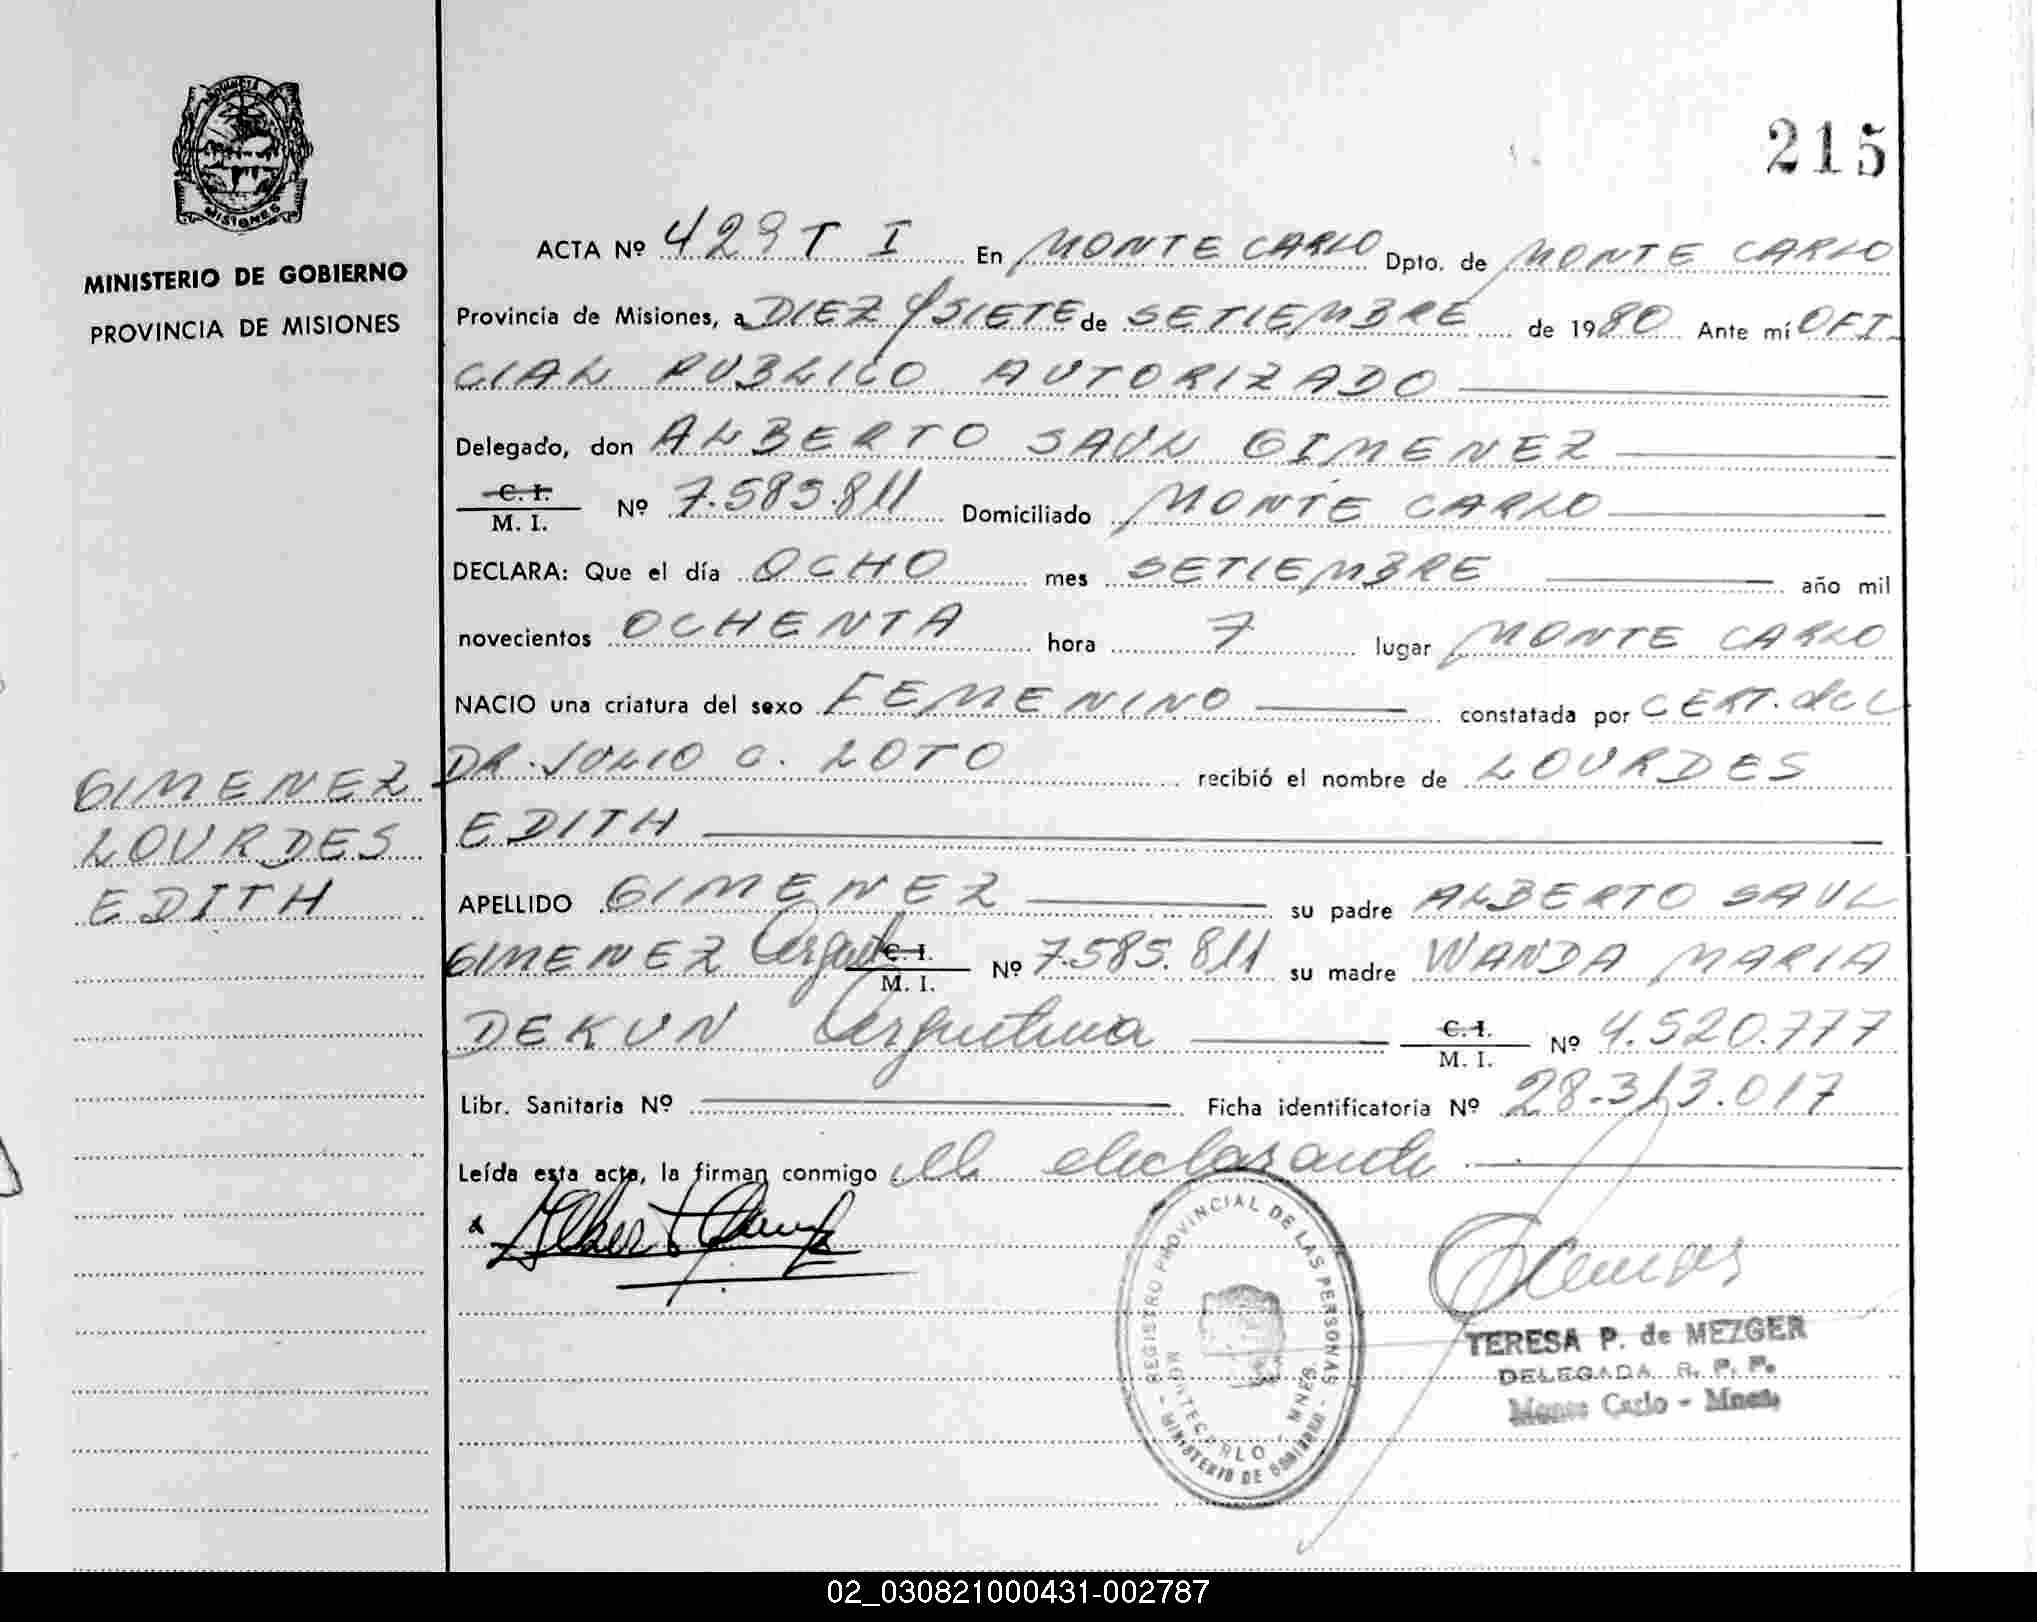 215
PROVINCIA DE
MISIONES
MINISTERIO DE GOBIERNO
PROVINCIA DE MISIONES
ACTA Nº 429 T I En MONTE CARLO Dpto. de MONTE CARLO
Provincia de Misiones, a DIEZ Y SIETE de SETIEMBRE de 1980 Ante mí OFI-
CIAL PUBLICO AUTORIZADO
Delegado, don ALBERTO SAUL GIMENEZ
C. I.
M. I. Nº 7.585.811 Domiciliado MONTE CARLO
DECLARA: Que el día OCHO mes SETIEMBRE año mil
novecientos OCHENTA hora 7 lugar MONTE CARLO
NACIO una criatura del sexo FEMENINO constatada por CERT. del
DR. JULIO C. LOTO recibió el nombre de LOURDES
EDITH
GIMENEZ
LOURDES
EDITH
APELLIDO GIMENEZ su padre ALBERTO SAUL
GIMENEZ C. I. M. I. Nº 7.585.811 su madre WANDA MARIA
DEKUN Argentina C. I. M. I. Nº 4.520.777
Libr. Sanitaria Nº Ficha identificatoria Nº 28.313.017
Leída esta acta, la firman conmigo el declarante
x
REGISTRO PROVINCIAL DE LAS PERSONAS
MONTECARLO - MNES.
- MINISTERIO DE GOBIERNO -
TERESA P. de MEZGER
DELEGADA R. P. P.
Monte Carlo - Mnes
02_030821000431-002787